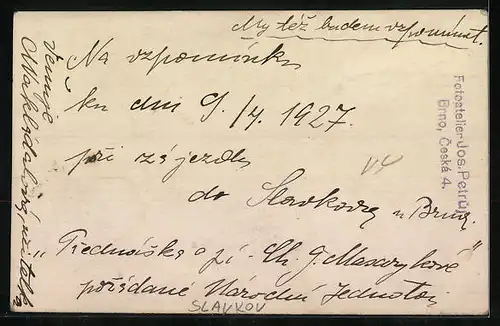 My též budem vzpomínat.
Na vzpomínku
ku dni 9./4. 1927.
při zájezdu
do Slavkova u Brna.
"Přednáška pí. Ch. G. Masarykové"
pořádané Národní Jednotou
SLAVKOV
věnuje
učitelka
Fotoatelier Jos. Petrů,
Brno, Česká 4.